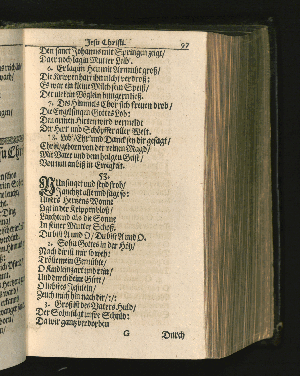 Jesu Christi. 97
Den sanct Johannes mit Springen zeigt/
Da er noch lag in Mutter Leib.
6. Er lag im Heu mit Armuht groß/
Die Krippen hart ihn nicht verdroß/
Es war ein kleine Milch sein Speiß/
Der nie kein Vöglein hungern ließ.
7. Des Himmels Chor sich freuen drob/
Die Engel singen Gottes Lob/
Den armen Hirten wird vermeldt
Der Hirt und Schöpffer aller Welt.
8. Lob/ Ehr und Danck sey dir gesagt/
Christ/ geborn von der reinen Magd/
Mit Vater und dem heilgen Geist/
Von nun an biß in Ewigkeit.
53.
NUn singet und seyd froh/
Jauchzt alle und sagt so:
Unsers Hertzens Wonne
Ligt in der Krippen bloß/
Leuchtet als die Sonne
In seiner Mutter Schoß.
Du bist A und O/ Du bist A und O.
2. Sohn Gottes in der Höh/
Nach dir ist mir so weh:
Tröst mir mein Gemühte/
O Kindlein zart und rein/
Und durch deine Güte/
O liebstes Jesulein/
Zeuch mich hin nach dir/:/:
3. Groß ist des Vaters Huld/
Der Sohn tilgt unsre Schuld:
Da wir gantz verdorben
G Durch